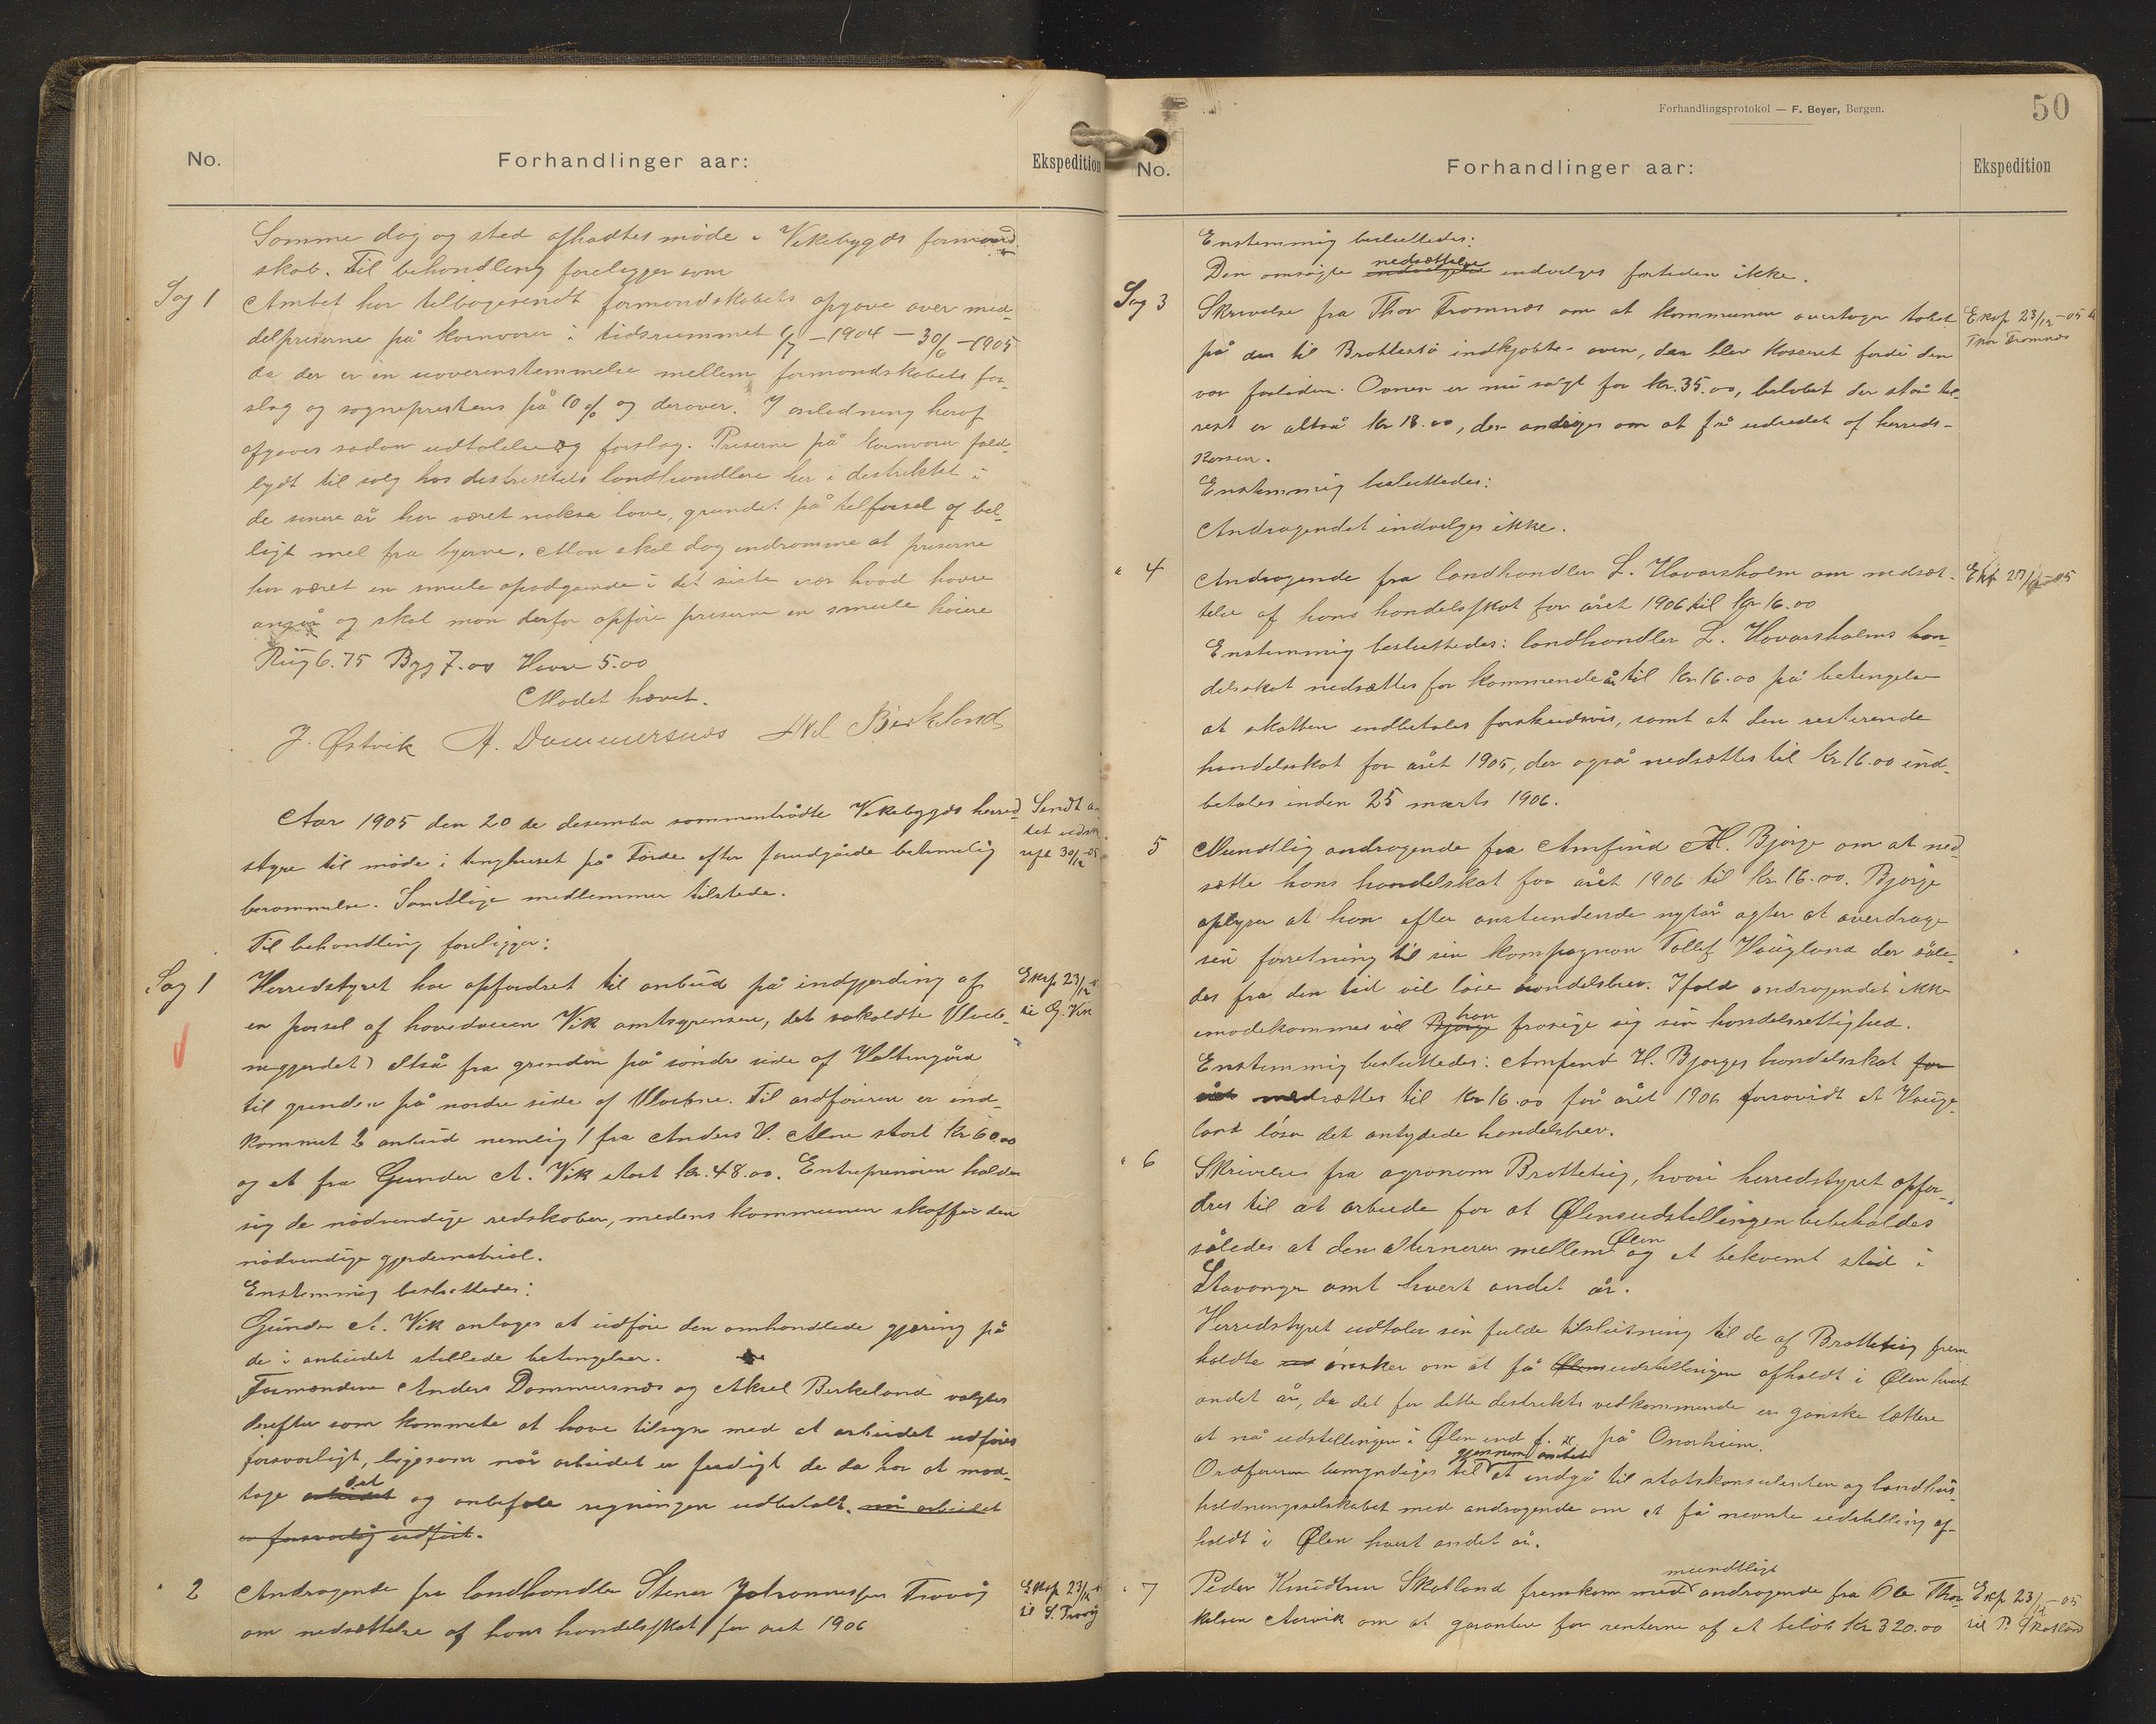 No.
Forhandlinger aar:
Ekspedition
Samme dag og sted afholdtes møde i Vikebygds formand-
skab. Til behandling foreligger som
Sag 1
Amtet har tilbagesendt formandskabets opgave over med-
delpriserne på kornvarer i tidsrummet 1/7 - 1904 - 30/6 - 1905
da der er en uoverenstemmelse mellem formandskabets for-
slag og sogneprestens på 10 % og derover. I anledning heraf
afgaves sådan udtalelse og forslag. Priserne på kornvarer fald-
bydt til salg hos destriktets landhandlere her i destriktet i
de senere år har været noksa lave, grundet på tilførsel af bil-
ligt mel fra byerne. Man skal dog indrømme at priserne
har været en smule opadgående i det siste især hvad havre
angår og skal man derfor opføre priserne en smule høiere
Rug 6.75 Byg 7.00 Havre 5.00
Mødet hævet.
J. Østvik A. Dommersnes Axel Birkeland
Aar 1905 den 20 de desember sammentrådte Vikebygds herred-
styre til møde i tinghuset på Førde efter forudgåede betimelig
berammelse. Samtlige medlemmer tilstede.
Til behandling foreligger:
Sendt am-
tet udsk
rift 30/12-05
Sag 1
Herredstyret har opfordret til anbud på indgjerding af
en parsel af hoveduveien Vik amtsgrensen, det såkaldte
Altså fra grinden på søndre side af
til grinden på nordre side af Til ordføreren er ind-
kommet 2 anbud nemlig 1 fra Anders H. Alne stort Kr 60.00
og et fra Gunder A. Vik stort kr. 48.00. Entreprenøren holder
sig de nødvendige redskaber, medens kommunen skaffer den
nødvendige gjerdematrial.
Eksp 23/12
til G. Vik
Enstemmig besluttedes:
Gunder A. Vik antages at udføre den omhandlede gjæring på
de i anbudet stillede betingelser.
Formændene Anders Dommersnes og Aksel Birkeland valgtes
derefter som kommite at have tilsyn med at arbeidet udføres
forsvarligt, ligesom når arbeidet er ferdigt de da har at mod-
tage arbeidet det og anbefale regningen udbetalt. når arbeidet
er forsvarlig udført.
" 2
Andragende fra landhandler Stener Johannessen Trovåg
om nedsættelse af hans handelsskat for året 1906
Eksp 23/12
til S. Trovåg
Forhandlingsprotokol — F. Beyer, Bergen.
50
No.
Forhandlinger aar:
Ekspedition
Enstemmig besluttedes:
Den omsøgte indvilgelse nedsættelse indvilges fortiden ikke.
Sag 3
Skrivelse fra Thor Tromnes om at kommunen overtager tabet
på den til Brattestø indkjøbte oven, der blev kaseret fordi den
var forliden. Ovnen er nu solgt for kr. 35.00, beløbet der står til-
rest er altså kr 18.00, der andriges om at få udredet af herreds-
kassen.
Eksp 23/12-05 til
Thor Tromnes
Enstemmig besluttedes:
Andragendet indvilges ikke.
" 4
Andragende fra landhandler L. Havarsholm om nedsæt-
telse af hans handelsskat for året 1906 til kr 16.00
Enstemmig besluttedes: landhandler L. Havarsholms han-
delsskat nedsættes for kommende år til kr. 16.00 på betingelse
at skatten indbetales forskudsvis, samt at den resterende
handelsskat for året 1905, der også nedsættes til kr 16.00 ind-
betales inden 25 marts 1906.
5
Mundtlig andragende fra Amfind H. Bjørge om at ned-
sætte hans handelskat for året 1906 til kr. 16.00. Bjørge
oplyser at han efter anstundende nytår agter at overdrage
sin forretning til sin kompagnon Tollef Haugland der såle-
des fra den tid vil løse handelsbrev. Ifald andragendet ikke
imødekommes vil Bjørge han frasige sig sin handelsrettighed.
Enstemmig besluttedes: Amfind H. Bjørges handelsskat for
året nedsættes til kr 16.00 for året 1906 forsåvidt at Hauge-
land løser det antydede handelsbrev.
" 6
Skrivelse fra agronom Bratteteig, hvori herredstyret opfor-
dres til at arbeide for at Ølensudstellingen bebeholdes
således at den alternerer mellem Ølen og et bekvemt sted i
Stavanger amt hvert andet år.
Herredstyret udtaler sin fulde tilslutning til de af Bratteteig frem-
holdte ønsker om at få Ølensudstellingen afholdt i Ølen hvert
andet år, da det for dette destrikts vedkommende er ganske lættere
at nå udstellingen i Ølen end f. x. på Onarheim.
Ordføreren bemyndiges til gjennem amtet at indgå til statskonsulenten og landhus-
holdningsselskabet med andragende om at få nevnte udstelling af-
holdt i Ølen hvert andet år.
" 7
Peder Knudtsen Skatland fremkom med mundtligt andragende fra Ole Thor-
kelsen Aurvik om at garantere for renterne af et beløb kr 320.00
Eksp 23/12-05
til P. Skatland